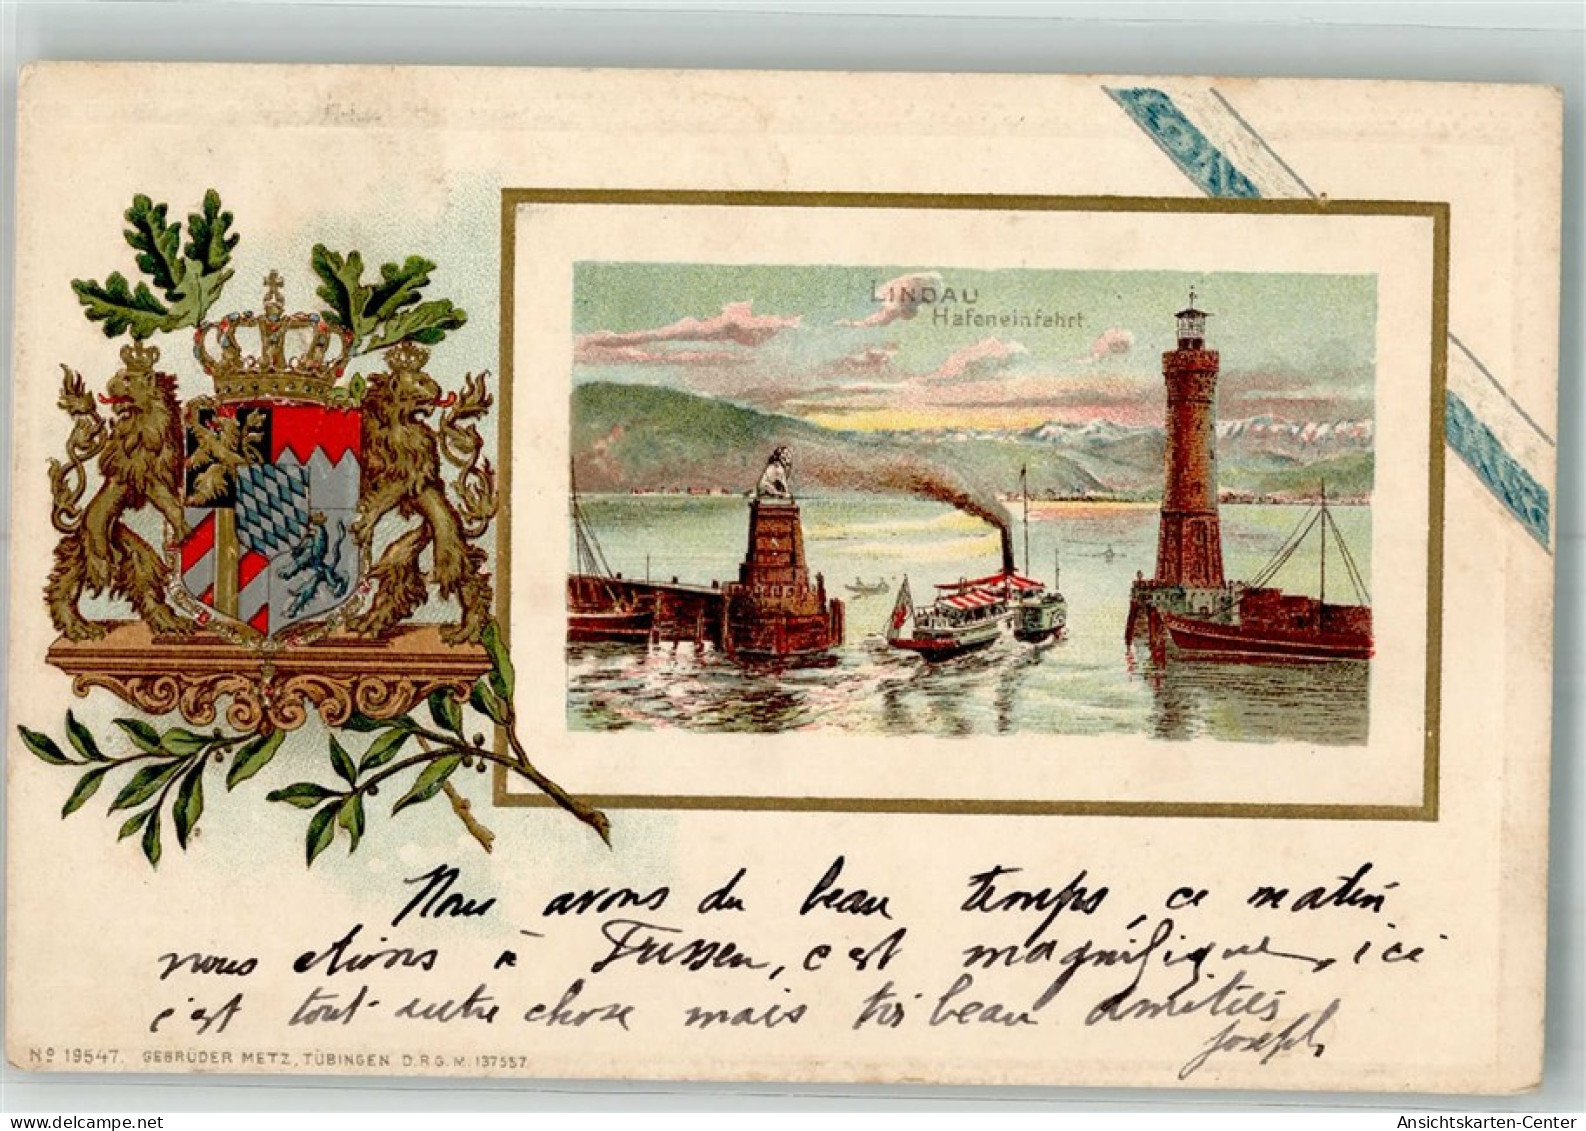 LINDAU
Hafeneinfahrt
Nous avons du beau temps, ce matin
nous etions à Fussen, c'est magnifique, ici
c'est tout autre chose mais très beau amitiés
Joseph
No 19547. GEBRÜDER METZ, TÜBINGEN D.R.G.M. 137557
delcampe.net
Ansichtskarten-Center